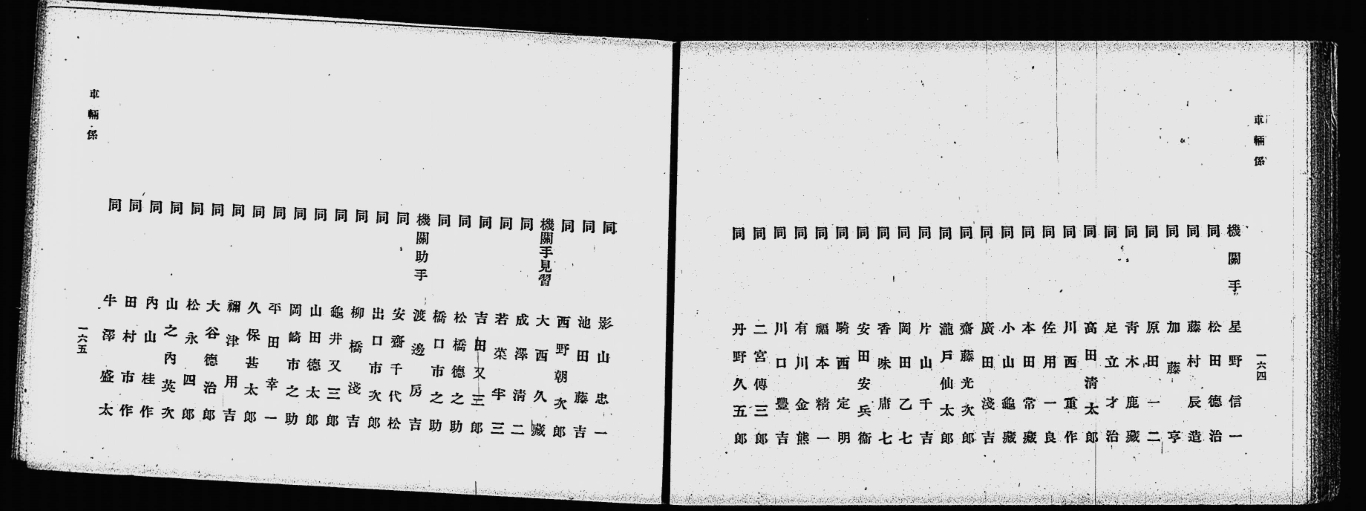 車輛係
機關手 星野信一
同 松田德治
同 藤村辰造
同 加藤亨
同 原田一二
同 青木鹿藏
同 足立才治
同 高田清太郎
同 川西重作
同 佐用一良
同 本田常藏
同 小山龜藏
同 廣田淺吉
同 齋藤光次郎
同 瀧戸仙太郎
同 片山千吉
同 岡田乙七
同 香味庸七
同 安田安兵衞
同 騎西定明
同 福本精一
同 有川金熊
同 川口豐吉
同 二宮傳三郎
同 丹野久五郎
一六四
車輛係
同 影山忠一
同 池田藤吉
同 西野朝次郎
機關手見習 大西久藏
同 成澤清二
同 若菜半三
同 吉田又三郎
同 松橋德之助
同 橋口市之助
機關助手 渡邊房吉
同 安齋千代松
同 出口市次郎
同 柳橋淺吉
同 龜井又三郎
同 山田德太郎
同 岡崎市之助
同 平田幸一
同 久保甚太郎
同 禰津用吉
同 大谷德治郎
同 松永四郎
同 山之內英次
同 內山桂作
同 田村市作
同 牛澤盛太
一六五